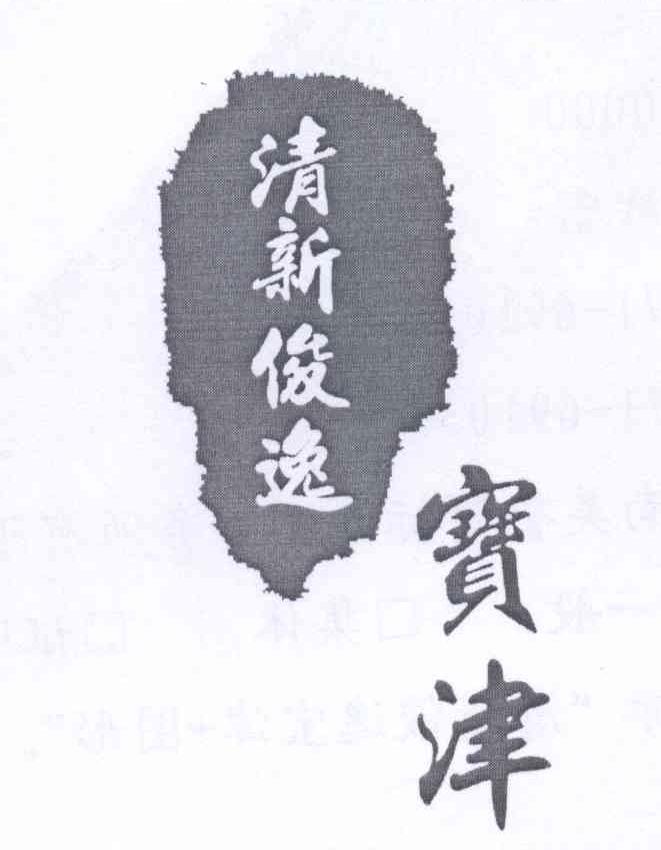 清新俊逸
寶津